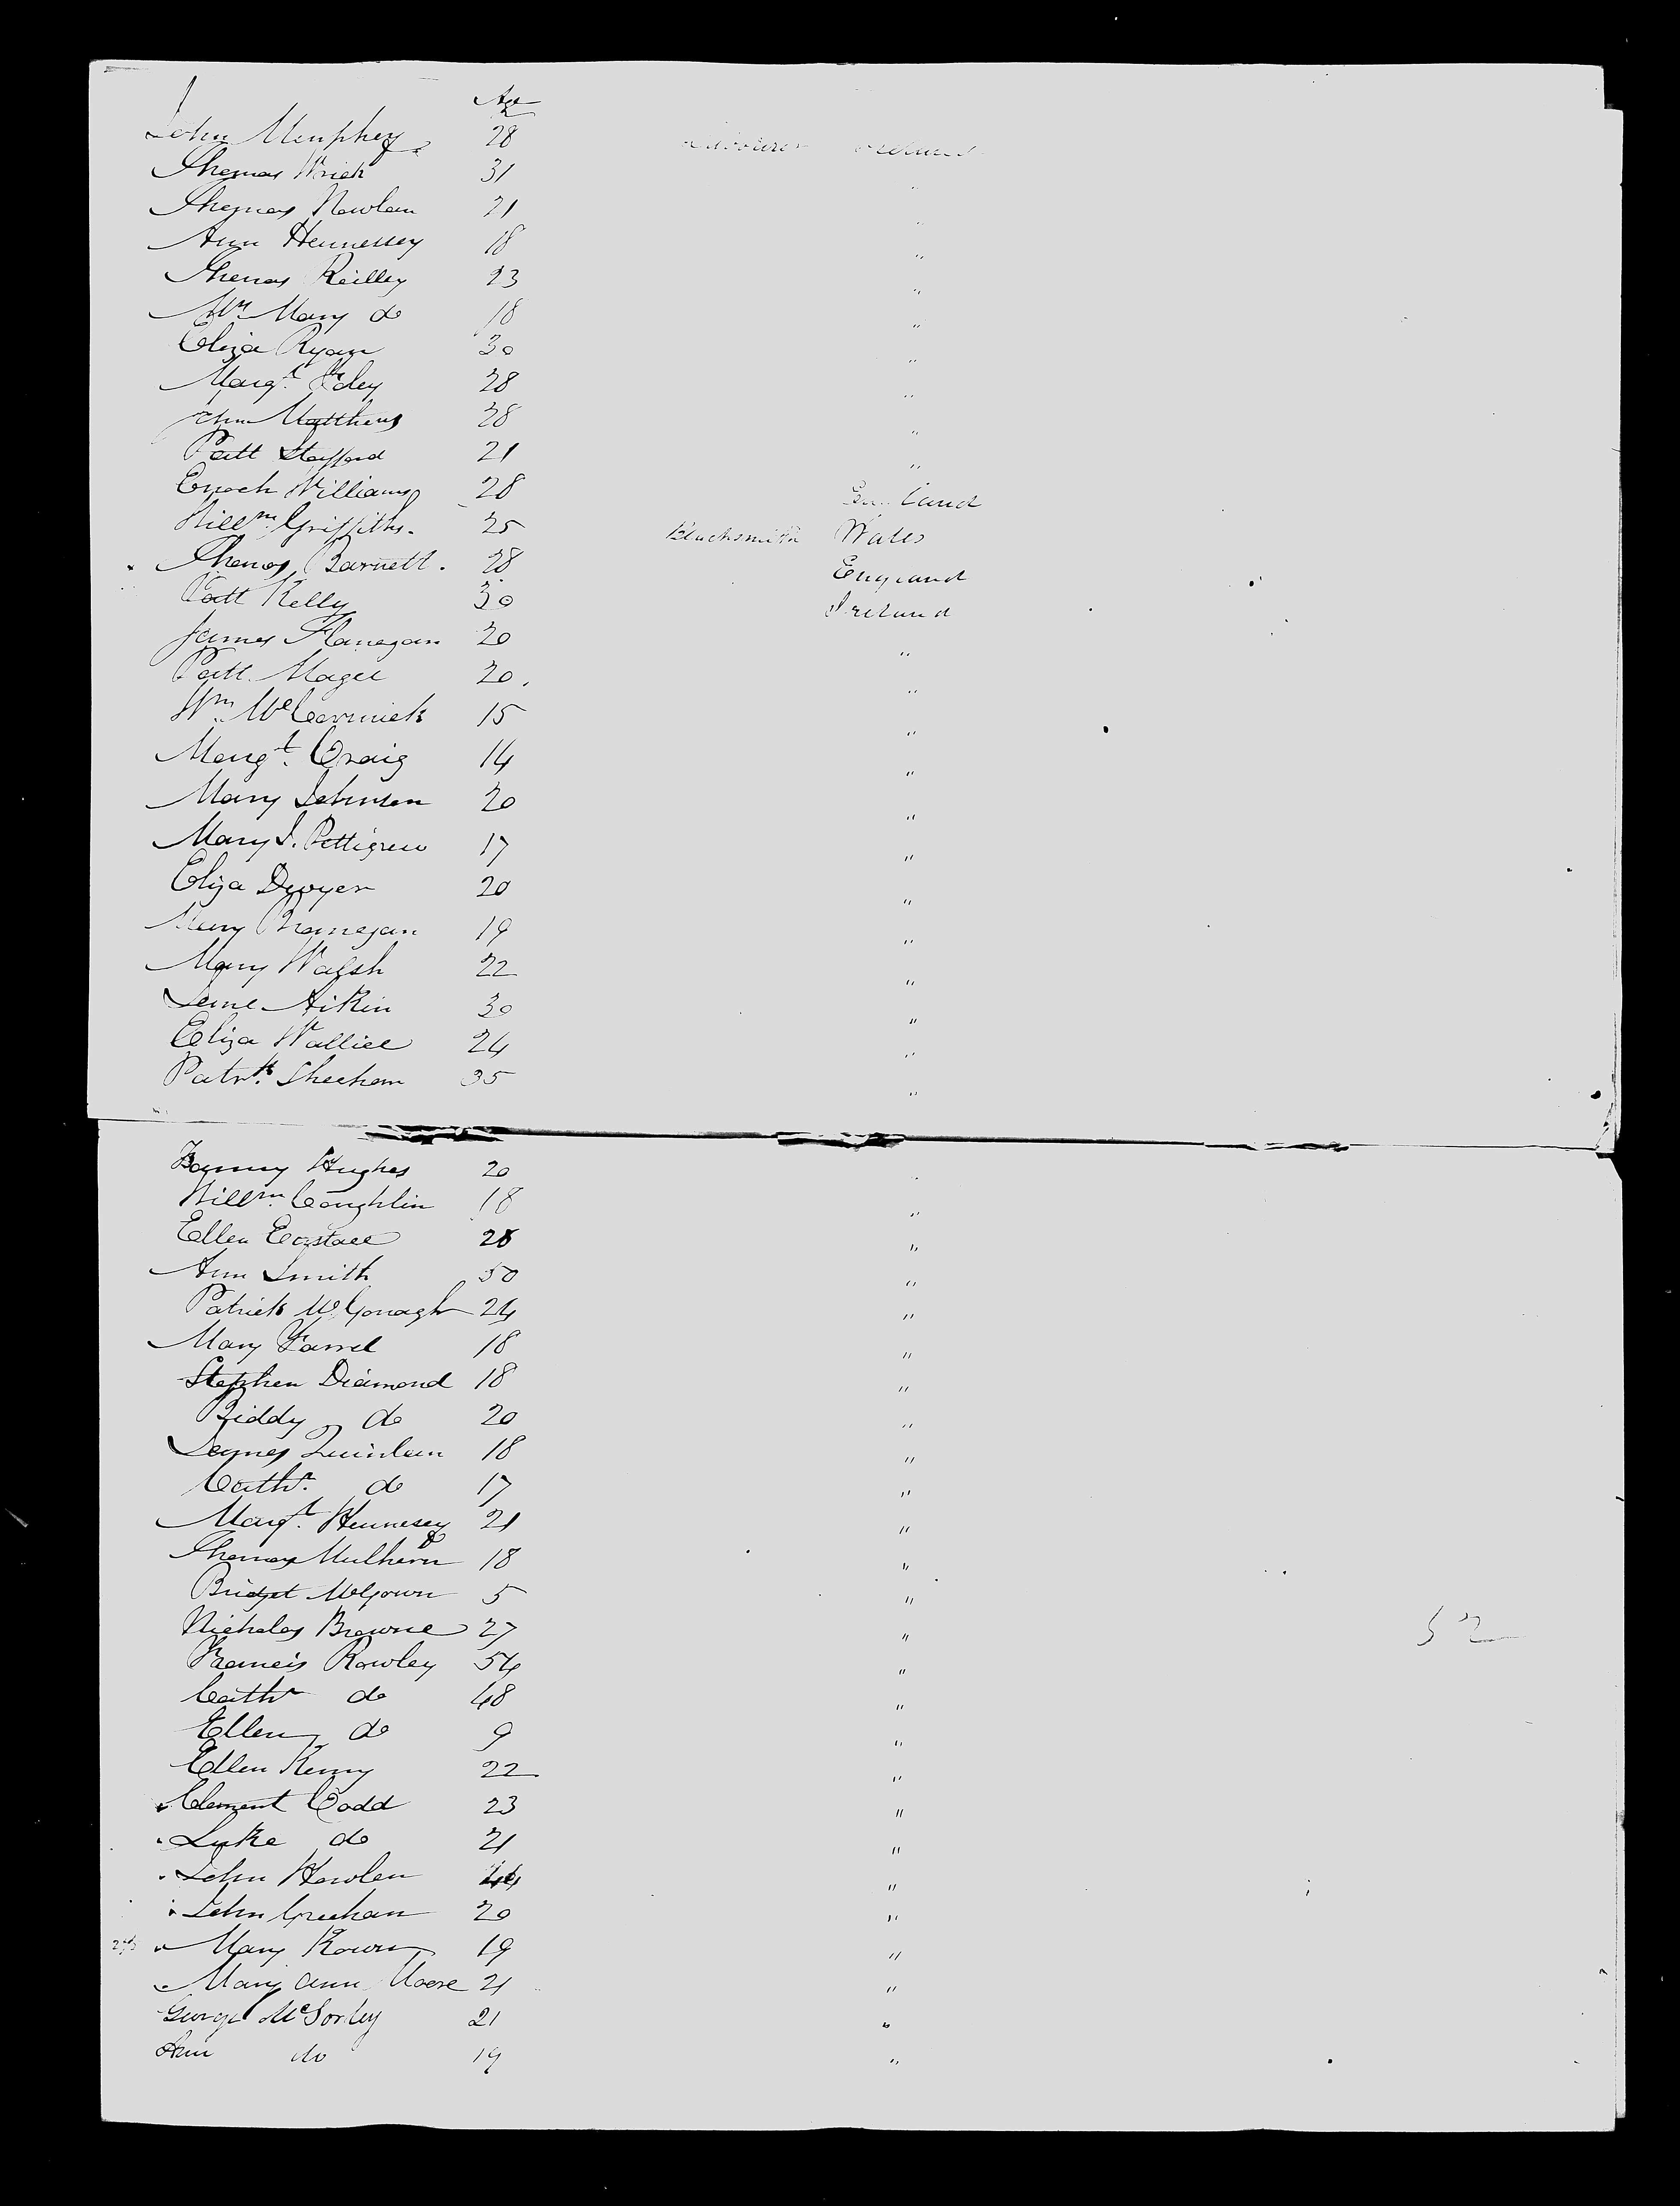 Age
John Murphey 28 Labourer Ireland
Thomas 31 "
Thomas Nowlan 21 "
Ann Hennessey 18 "
Thomas Reilley 23 "
Mrs Mary do 18 "
Eliza Ryan 30 "
Margt. Foley 28 "
John Matthews 28 "
Patt Stafford 21 "
Enoch Williams 28 England
Willm. Griffiths. 25 Blacksmith Wales
Thomas Barnett. 28 England
Patt Kelly 30 Ireland
James Flanegan 20 "
Patt. Magee 20. "
Wm. McCormick 15 "
Margt. Craig 14 "
Mary Johnson 20 "
Mary J. Pettigrew 17 "
Eliza Dwyer 20 "
Mary Branegan 19 "
Mary Walsh 22 "
Jane Aikin 30 "
Eliza Wallice 24 "
Patrk. Sheehan 35 "
Fanny Hughes 20 "
Willm. Coughlin 18 "
Ellen 28 "
Ann Smith 50 "
Patrick McGonagh 24 "
Mary Farrel 18 "
Stephen Diamond 18 "
Biddy do 20 "
James Quinlan 18 "
Cathr. do 17 "
Margt. Hennesey 21 "
Thomas Mulhern 18 "
Bridget McGown 5 "
Nicholas Browne 27 " 52
Francis Rowley 54 "
Cathr do 48 "
Ellen do 9 "
Ellen Kenny 22 "
Clement Codd 23 "
Luke do 21 "
John Howlen 44 "
John Greehan 20 "
Mary 19 "
Mary Ann Moore 21 "
George McSorley 21 "
Ann do 19 "